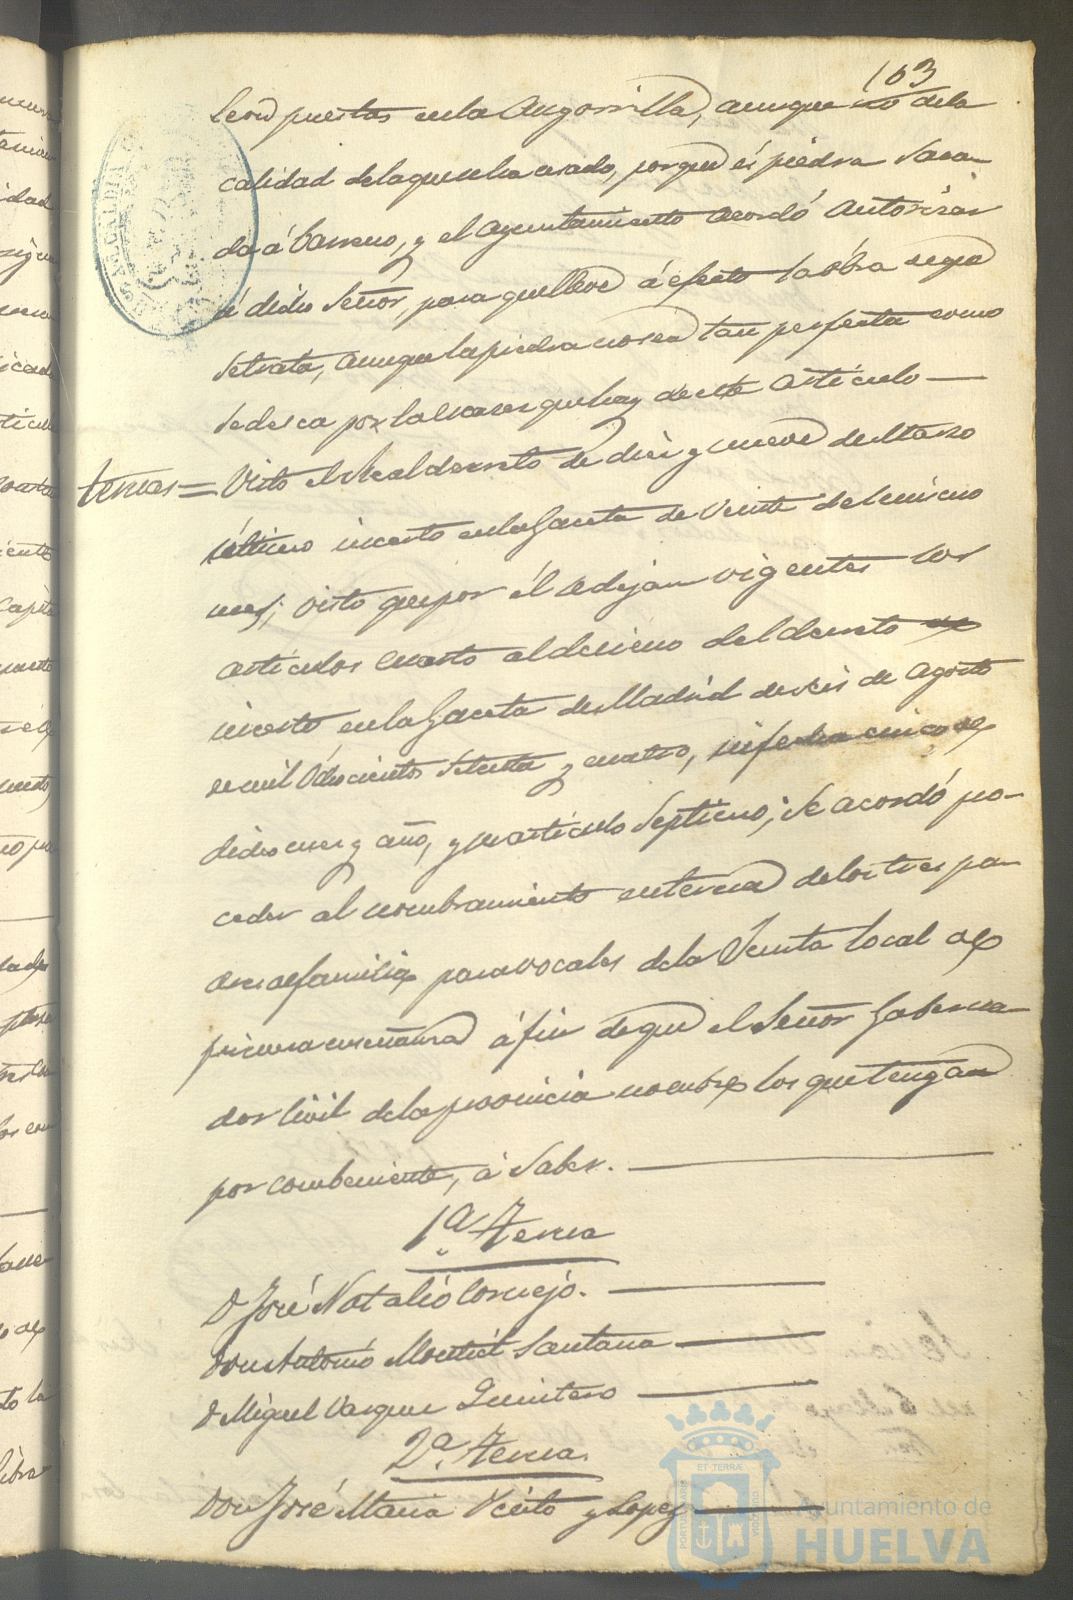 103
puestas en la Angorrilla, aunque no de la
calidad de la que se ha usado, porque és piedra Saca-
da á barreno, y el Ayuntamiento acordó autorizar
á dicho Señor, para que lleve á efecto la óbra de que
se trata, aunque la piedra no sea tan perfecta como
se desea por la escases que hay de este artículo
ternas = Visto el Real decreto de diez y nueve de Marzo
último incerto en la Gaceta de veinte del mismo
mes; visto que por él se dejan vigentes los
artículos cuarto al decimo del decreto
incerto en la Gaceta de Madrid de seis de Agosto
de mil Ochocientos Setenta y cuatro, su fecha cinco de
dicho mes y año, y su artículo Septimo; Se acordó pro-
ceder al nombramiento en terna de los tres pa-
dres de familia para vocales de la Junta local de
primera enseñanza á fin de que el Señor Goberna-
dor Civil de la provincia nombre los que tenga
por combeniente, á Saber.
1ª Terna
D José Natalio Cornejo.
Don Antonio Montiel Santana
D Miguel Vazquez Quintero
2ª Terna.
Don José Maria y Lopez
ALCALDIA
ET TERRÆ
PORTUS MARIS
CUSTODIA
Ayuntamiento de
HUELVA